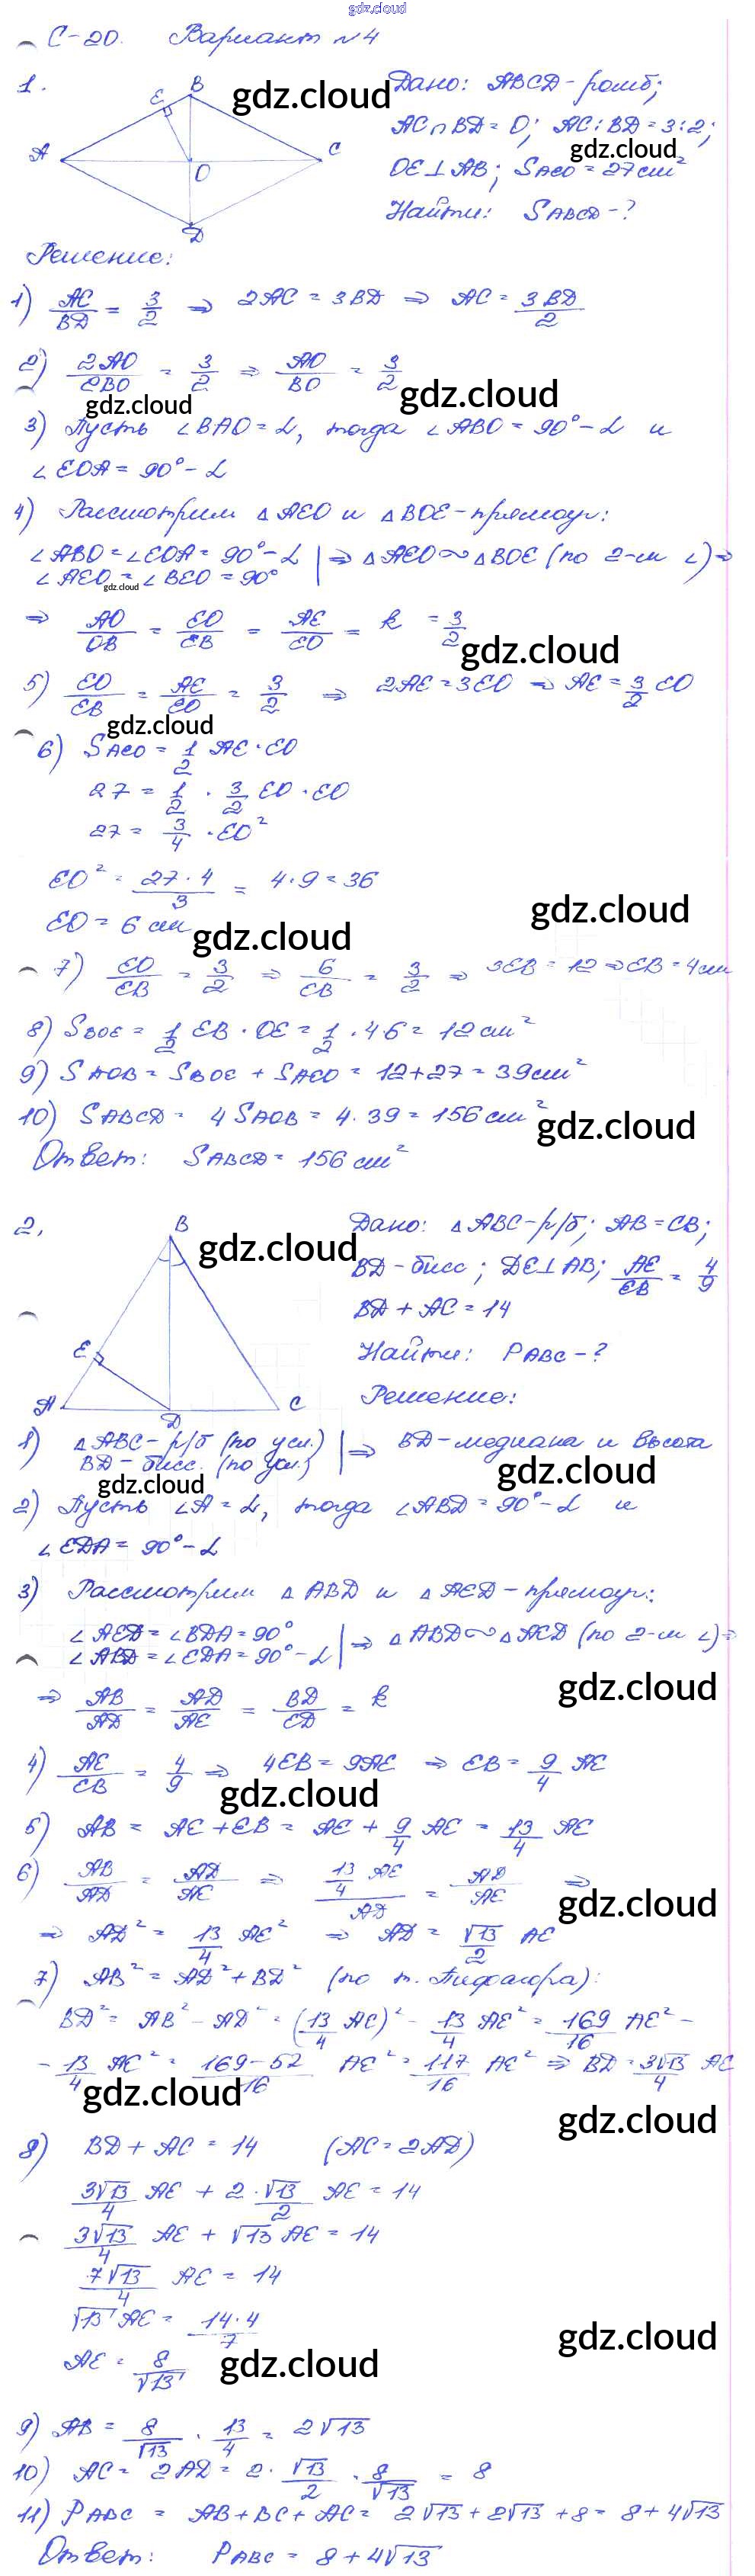 gdz.cloud
С-20. Вариант №4
1. Дано: ABCD - ромб;
AC∩BD = O; AC:BD = 3:2;
OE⊥AB; S AEO = 27 см²
Найти: S ABCD - ?
B
E
A
O
C
D
gdz.cloud
gdz.cloud
Решение:
1) AC/BD = 3/2 ⇒ 2AC = 3BD ⇒ AC = 3BD/2
2) 2AO/2BO = 3/2 ⇒ AO/BO = 3/2
gdz.cloud
gdz.cloud
3) Пусть ∠BAO = α, тогда ∠ABO = 90° - α и
∠EOA = 90° - α
4) Рассмотрим △AEO и △BOE - прямоуг:
∠ABO = ∠EOA = 90° - α | ⇒ △AEO ∾ △BOE (по 2-м ∠) ⇒
∠AEO = ∠BEO = 90°
gdz.cloud
⇒ AO/OB = EO/EB = AE/EO = k = 3/2
gdz.cloud
5) EO/EB = AE/EO = 3/2 ⇒ 2AE = 3EO ⇒ AE = 3/2 EO
gdz.cloud
6) S AEO = 1/2 AE · EO
27 = 1/2 · 3/2 EO · EO
27 = 3/4 · EO²
EO² = 27·4/3 = 4·9 = 36
EO = 6 см
gdz.cloud
gdz.cloud
7) EO/EB = 3/2 ⇒ 6/EB = 3/2 ⇒ 3EB = 12 ⇒ EB = 4 см
8) S BOE = 1/2 EB · OE = 1/2 · 4·6 = 12 см²
9) S AOB = S BOE + S AEO = 12 + 27 = 39 см²
10) S ABCD = 4 S AOB = 4·39 = 156 см²
gdz.cloud
Ответ: S ABCD = 156 см²
2. Дано: △ABC - р/б; AB = CB;
BD - бисс; DE⊥AB; AE/EB = 4/9
BD + AC = 14
Найти: P ABC - ?
B
E
A
D
C
gdz.cloud
Решение:
1) △ABC - р/б (по усл.) | ⇒ BD - медиана и высота
BD - бисс. (по усл.)
gdz.cloud
gdz.cloud
2) Пусть ∠A = α, тогда ∠ABD = 90° - α и
∠EDA = 90° - α
3) Рассмотрим △ABD и △AED - прямоуг.:
∠AED = ∠BDA = 90° | ⇒ △ABD ∾ △AED (по 2-м ∠) ⇒
∠ABD = ∠EDA = 90° - α
⇒ AB/AD = AD/AE = BD/ED = k
gdz.cloud
4) AE/EB = 4/9 ⇒ 4EB = 9AE ⇒ EB = 9/4 AE
gdz.cloud
5) AB = AE + EB = AE + 9/4 AE = 13/4 AE
6) AB/AD = AD/AE ⇒ 13/4 AE/AD = AD/AE ⇒
gdz.cloud
⇒ AD² = 13/4 AE² ⇒ AD = √13/2 AE
7) AB² = AD² + BD² (по т. Пифагора):
BD² = AB² - AD² = (13/4 AE)² - 13/4 AE² = 169/16 AE² -
- 13/4 AE² = 169-52/16 AE² = 117/16 AE² ⇒ BD = 3√13/4 AE
gdz.cloud
gdz.cloud
8) BD + AC = 14 (AC = 2AD)
3√13/4 AE + 2·√13/2 AE = 14
3√13/4 AE + √13 AE = 14
7√13/4 AE = 14
√13 AE = 14·4/7
gdz.cloud
AE = 8/√13
gdz.cloud
9) AB = 8/√13 · 13/4 = 2√13
10) AC = 2AD = 2·√13/2 · 8/√13 = 8
11) P ABC = AB + BC + AC = 2√13 + 2√13 + 8 = 8 + 4√13
Ответ: P ABC = 8 + 4√13